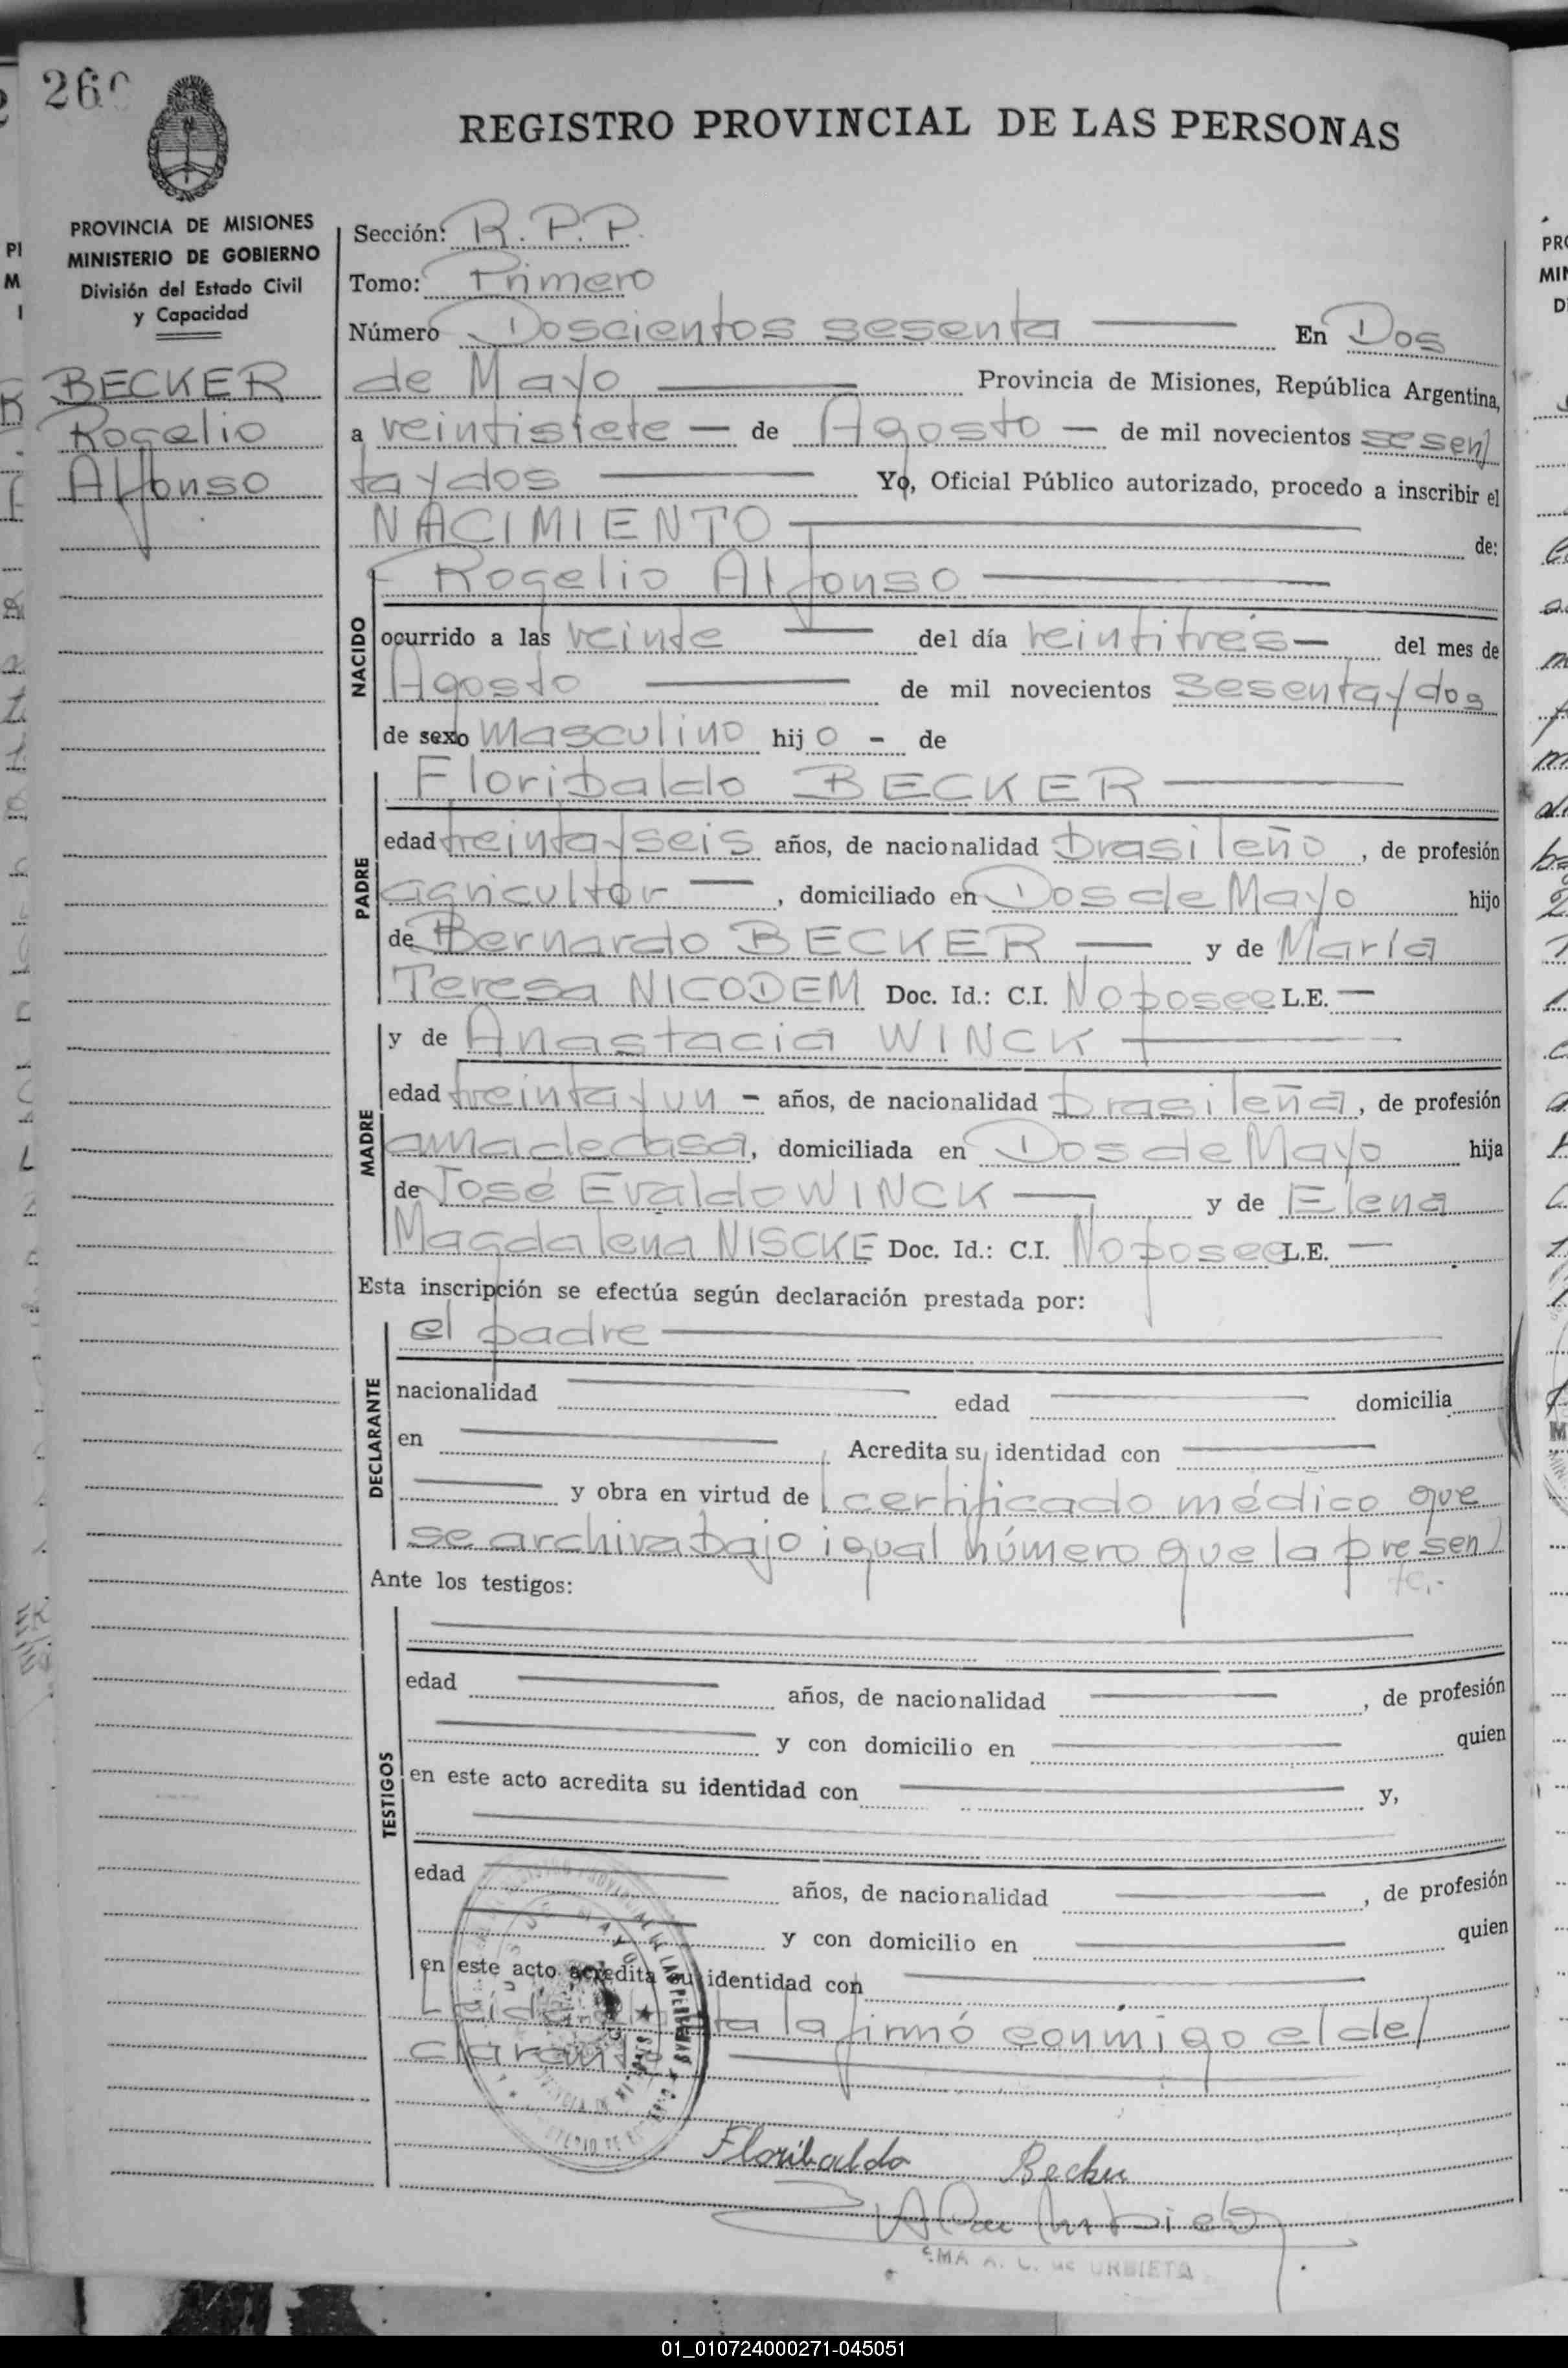 260
REGISTRO PROVINCIAL DE LAS PERSONAS
PROVINCIA DE MISIONES
MINISTERIO DE GOBIERNO
División del Estado Civil
y Capacidad
BECKER
Rogelio
Alfonso
Sección: R. P. P.
Tomo: Primero
Número Doscientos sesenta — En Dos
de Mayo — Provincia de Misiones, República Argentina,
a veintisiete — de Agosto — de mil novecientos sesen
taydos — Yo, Oficial Público autorizado, procedo a inscribir el
NACIMIENTO — de:
Rogelio Alfonso —
NACIDO
ocurrido a las veinte — del día veintitrés — del mes de
Agosto — de mil novecientos sesentaydos
de sexo masculino hijo - de
Floribaldo BECKER —
PADRE
edad treintayseis años, de nacionalidad brasileño, de profesión
agricultor —, domiciliado en Dos de Mayo hijo
de Bernardo BECKER — y de María
Teresa NICODEM Doc. Id.: C.I. No posee L.E. —
y de Anastacia WINCK —
MADRE
edad treintayun - años, de nacionalidad brasileña, de profesión
ama de casa, domiciliada en Dos de Mayo hija
de José Evaldo WINCK — y de Elena
Magdalena NISCKE Doc. Id.: C.I. No posee L.E. —
Esta inscripción se efectúa según declaración prestada por:
el padre —
DECLARANTE
nacionalidad — edad — domicilia
en — Acredita su identidad con —
— y obra en virtud de certificado médico que
se archiva bajo igual número que la presen
te.-
Ante los testigos:
TESTIGOS
edad — años, de nacionalidad —, de profesión
— y con domicilio en — quien
en este acto acredita su identidad con — y,
edad — años, de nacionalidad —, de profesión
— y con domicilio en — quien
en este acto acredita su identidad con —
Leída la firmó conmigo el de
clarante —
Floribaldo Becker
A. L. de URBIETA
01_010724000271-045051